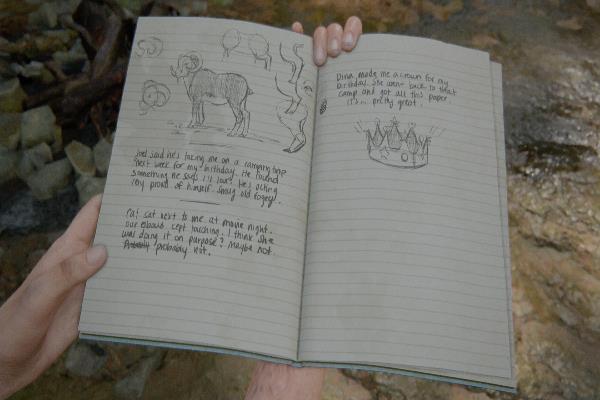 Joel said he's taking me on a camping trip
next week for my birthday. He found
something he says I'll love. He's acting
very proud of himself. Smug old fogey.
Cat sat next to me at movie night.
Our elbows kept touching. I think she
was doing it on purpose? Maybe not.
probably not.
Dina made me a crown for my
birthday. She went back to that
camp and got all this paper.
It's... pretty great.